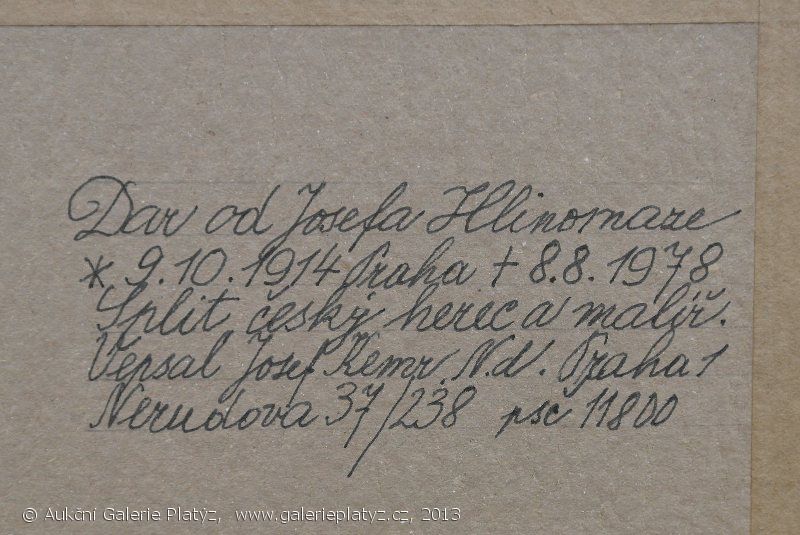 Dar od Josefa Hlinomaze
* 9.10.1914 Praha + 8.8.1978
Split český herec a malíř.
Vepsal Josef Kemr. N.d. Praha 1
Nerudova 37/238 psč 11800
© Aukční Galerie Platýz, www.galerieplatyz.cz, 2013